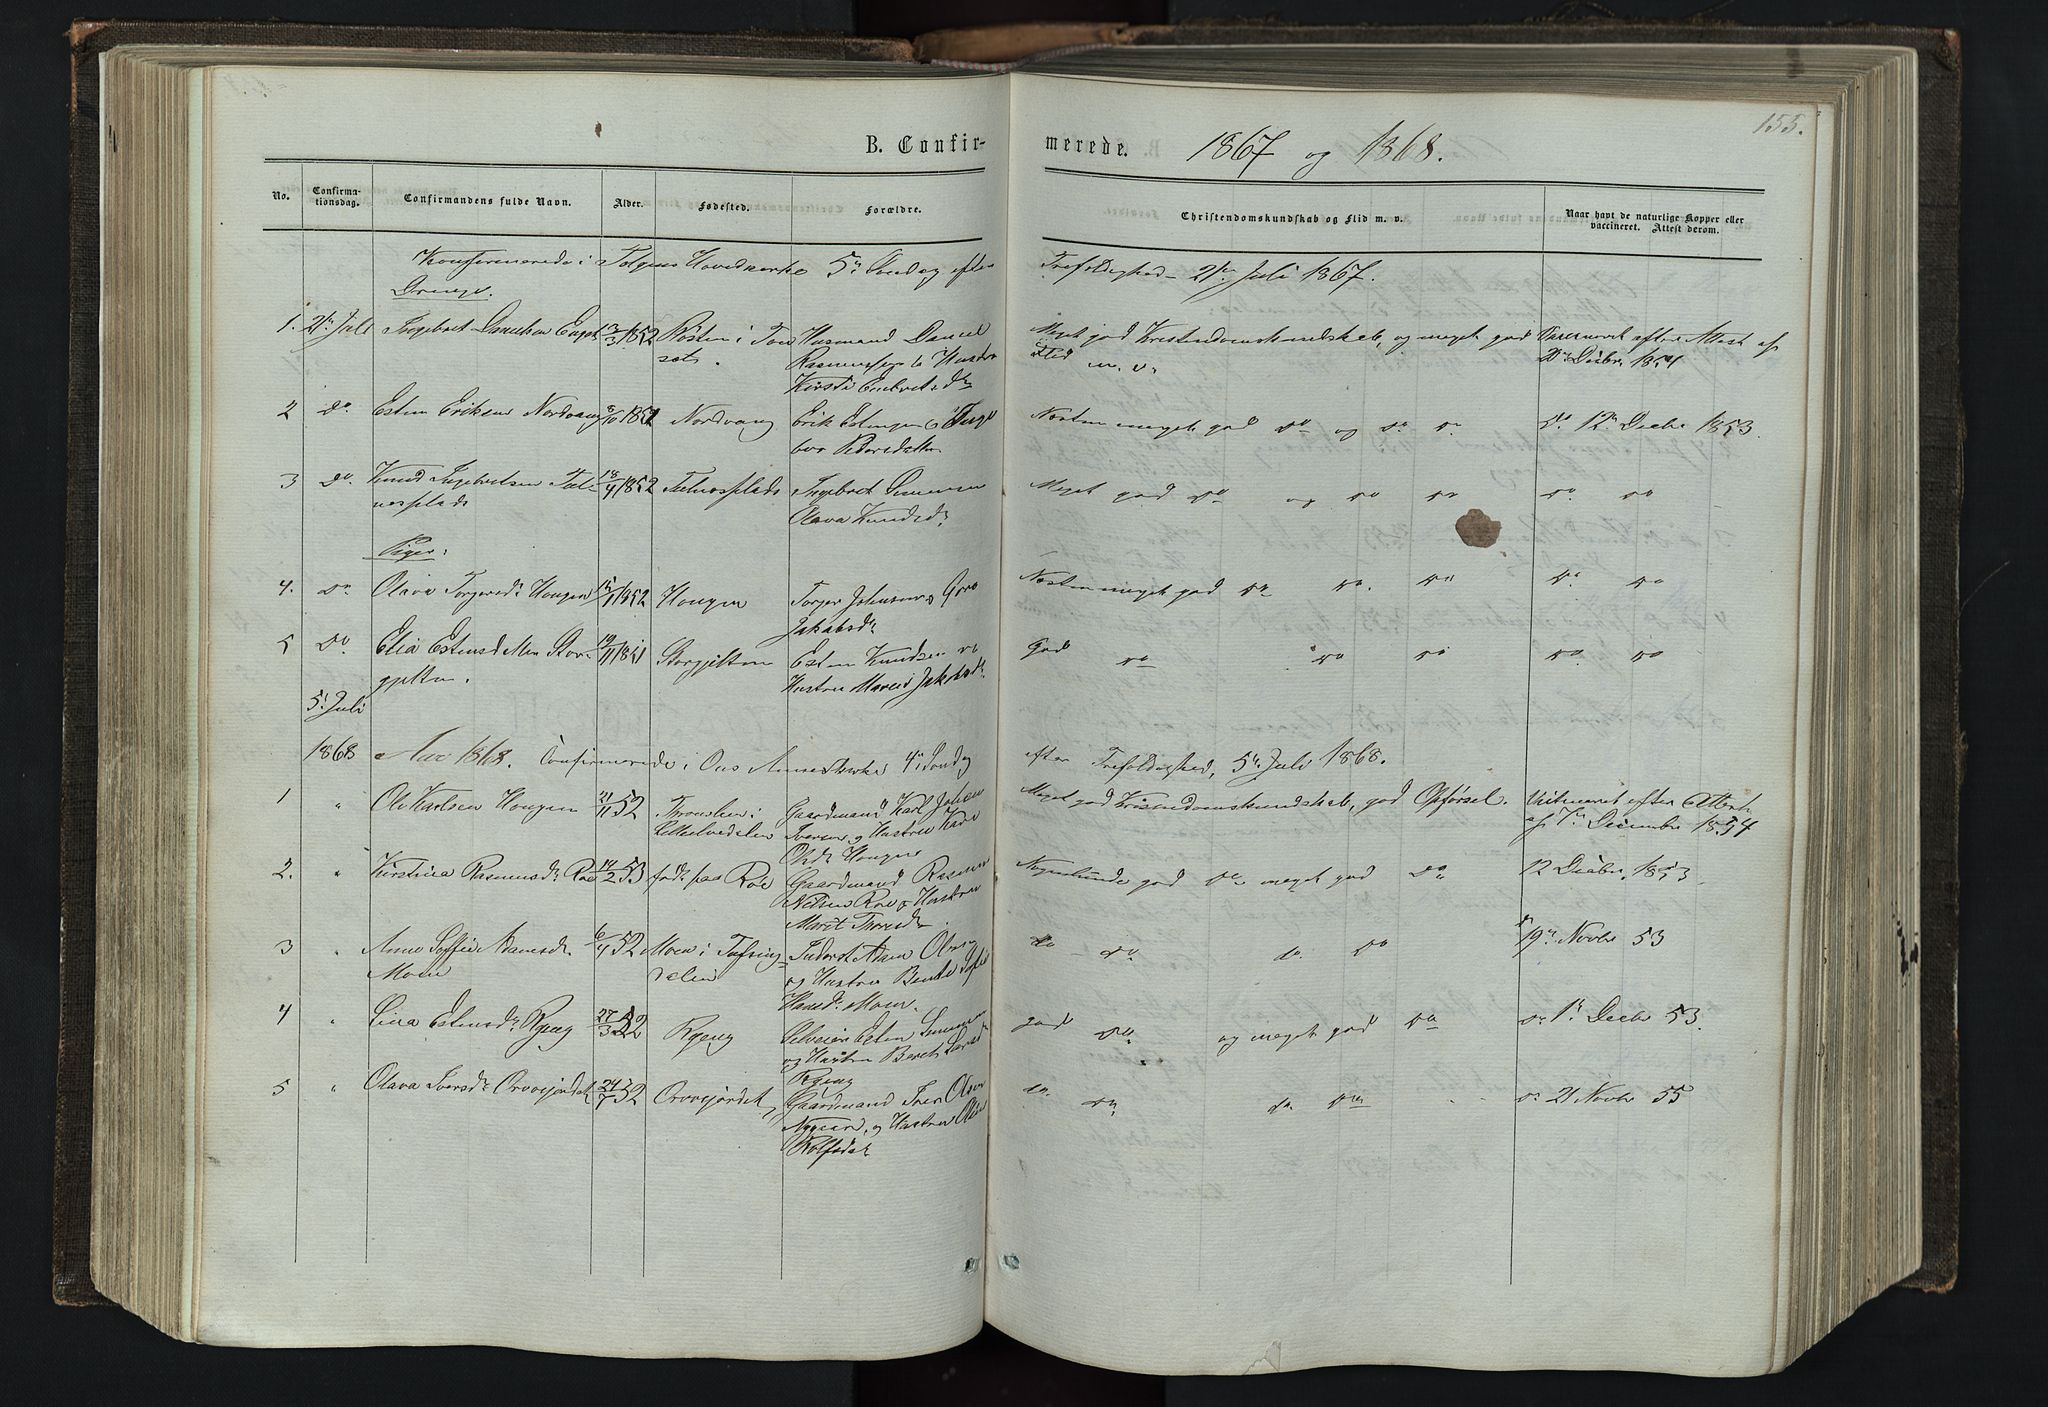 155.
B. Confirmerede. 1867 og 1868.
No. Confirmationsdag. Confirmandens fulde Navn. Alder. Fødested. Forældre. Christendomskundskab og Flid m. v. Naar havt de naturlige Kopper eller vaccineret. Attest derom.
Konfirmerede i Tolgens Hovedkirke 5te Søndag efter Trefoldighed 21de Juli 1867.
Drenge.
1. 21de Juli Ingebret Danielsen 3/3 1852 i Tønset. Husmand Daniel Hustru Kirsti Meget god Kristendomskundskab, og meget god Flid m. v. Vaccineret efter Attest af Decbr 1854
2 Do Esten Eriksen Nordvang /10 1852 Nordvang Erik Estensen Ingebor Pedersdatter Næsten meget god Do og Do Do Do 12te Decbr 1853.
3 Do. Knud Ingebretsen 18/4 1852 Ingebret Simensen Olava Knudsd. Meget god Do og Do Do Do. Do
Piger:
4. Do Olava Torgersdr Hougen 15/11 1852 Hougen Torger Johnsen Goro Jakobsdr Næsten meget god Do Do. Do Do. Do
5 Do. Elia Estensdatter 19/11 1851 Esten Knudsen Hustru Marit Jakobsdr God Do Do Do Do. Do
5te Juli
1868 Aar 1868. Confirmerede i Os Annexkirke 4de Søndag efter Trefoldighed, 5te Juli 1868.
1 " Ole Karlsen Hougen 21/11 52 i Gaardmand Karl Johan Iversen og Hustru Kari Olsdr Hougen Meget god Kristendomskundskab, god Opførsel. Vaccineret efter Attest af 7de December 1854
2. " Kirstina Rasmusdr Røe 14/2 53 født paa Røe Gaardmand Rasmus Nilsen Røe og Hustru Marit Nogenlunde god Do meget god Do 12 Decbr. 1853
3 " Anne Soffie Adamsdr Moen 6/7 52 Moen i Tufsingdalen Inderst Adam Olsen og Hustru Hansdr Moen. do Do do. Do 19de Novbr 53
4 " Estensdr Ryeng 27/3 52 Ryeng Selveier Esten Simensen og Hustru Beret Ryeng god Do og meget god Do Do 1te Decbr 53.
5 " Olava Iversdr Orvosjordet 24/7 52 Orvosjordet, Gaardmand Iver Olsen og Hustru do. Do do. Do Do 21 Novbr 55